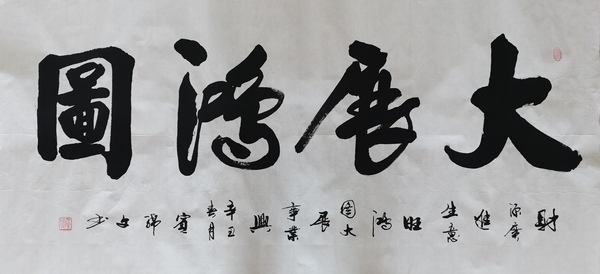 大展鴻圖
財源廣進生意旺鴻圖大展事業興辛丑春月賓瑞文书